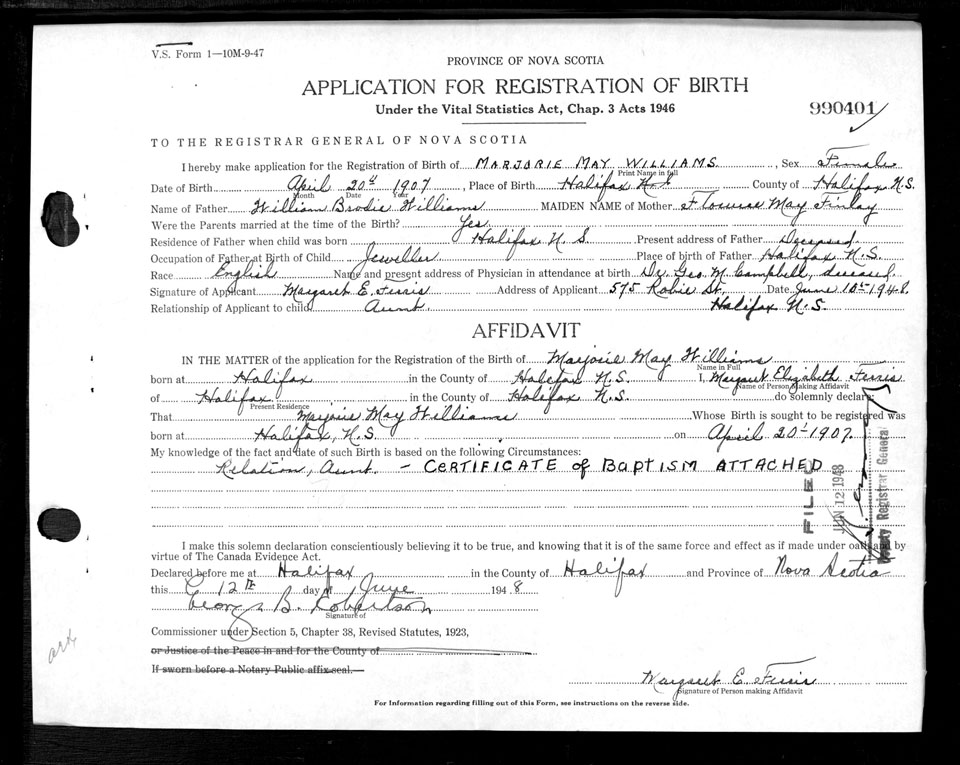 V.S. Form 1—10M-9-47
PROVINCE OF NOVA SCOTIA
APPLICATION FOR REGISTRATION OF BIRTH
Under the Vital Statistics Act, Chap. 3 Acts 1946
990401
TO THE REGISTRAR GENERAL OF NOVA SCOTIA
I hereby make application for the Registration of Birth of MARJORIE MAY WILLIAMS, Sex Female
Print Name in full
Date of Birth April 20th 1907, Place of Birth Halifax N.S County of Halifax N.S.
Month Date Year
Name of Father William Brodie Williams MAIDEN NAME of Mother May Finlay
Were the Parents married at the time of the Birth? Yes
Residence of Father when child was born Halifax N.S. Present address of Father Deceased
Occupation of Father at Birth of Child Jeweller Place of birth of Father Halifax N.S.
Race English Name and present address of Physician in attendance at birth Dr. Geo. M. Campbell, deceased
Signature of Applicant Margaret E. Ferris Address of Applicant 575 Robie St. Date June 10th 1948.
Relationship of Applicant to child Aunt Halifax N.S.
AFFIDAVIT
IN THE MATTER of the application for the Registration of the Birth of Marjorie May Williams
Name in Full
born at Halifax in the County of Halifax N.S. I, Margaret Elizabeth Ferris
Name of Person Making Affidavit
of Halifax in the County of Halifax N.S. do solemnly declare:
Present Residence
That Marjorie May Williams Whose Birth is sought to be registered was
born at Halifax, N.S. on April 20th 1907.
My knowledge of the fact and date of such Birth is based on the following Circumstances:
Relation, Aunt. - CERTIFICATE of BAPTISM ATTACHED
FILED
JUN 12 1948
Deputy Registrar General
I make this solemn declaration conscientiously believing it to be true, and knowing that it is of the same force and effect as if made under oath and by
virtue of The Canada Evidence Act.
Declared before me at Halifax in the County of Halifax and Province of Nova Scotia
this 12th day of June 1948
George B. Robertson
Signature of
Commissioner under Section 5, Chapter 38, Revised Statutes, 1923,
or Justice of the Peace in and for the County of
If sworn before a Notary Public affix seal.
Margaret E. Ferris
Signature of Person making Affidavit
For Information regarding filling out of this Form, see instructions on the reverse side.